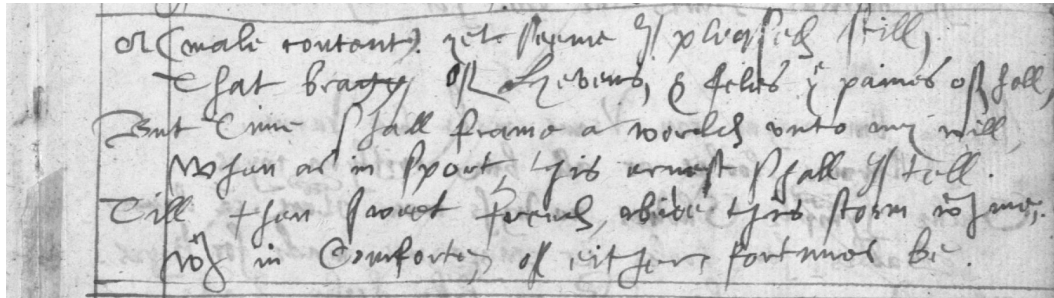 or (male content) yet seeme I pleased still,
That bragg of Hevens, & feles ye paines of hell,
But Time shall frame a world unto my will
When as in sport, this ernest shall I tell.
Till then sweet frend, abide this storm wth me,
wch in Comfortes of either fortunes be.